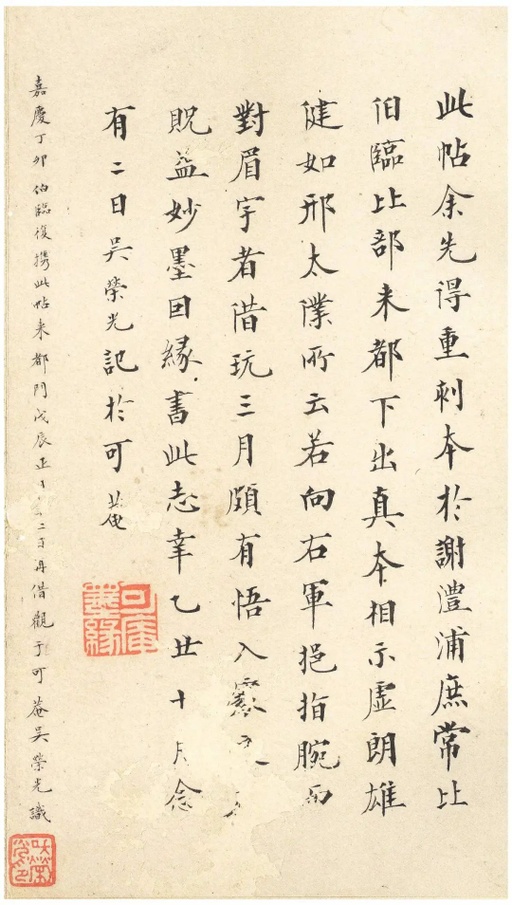 此帖余先得重刻本於謝澧浦庶常比
伯臨比部来都下出真本相示虛朗雄
健如邢太僕所云若向右軍挹指腕而
對眉宇者借玩三月頗有悟入處
貺益妙墨因緣書此志幸乙丑十月念
有二日吳榮光記於可菴
可庵墨緣
嘉慶丁卯伯臨復携此帖来都門戊辰正二日再借觀于可菴吳榮光識
吳榮光印